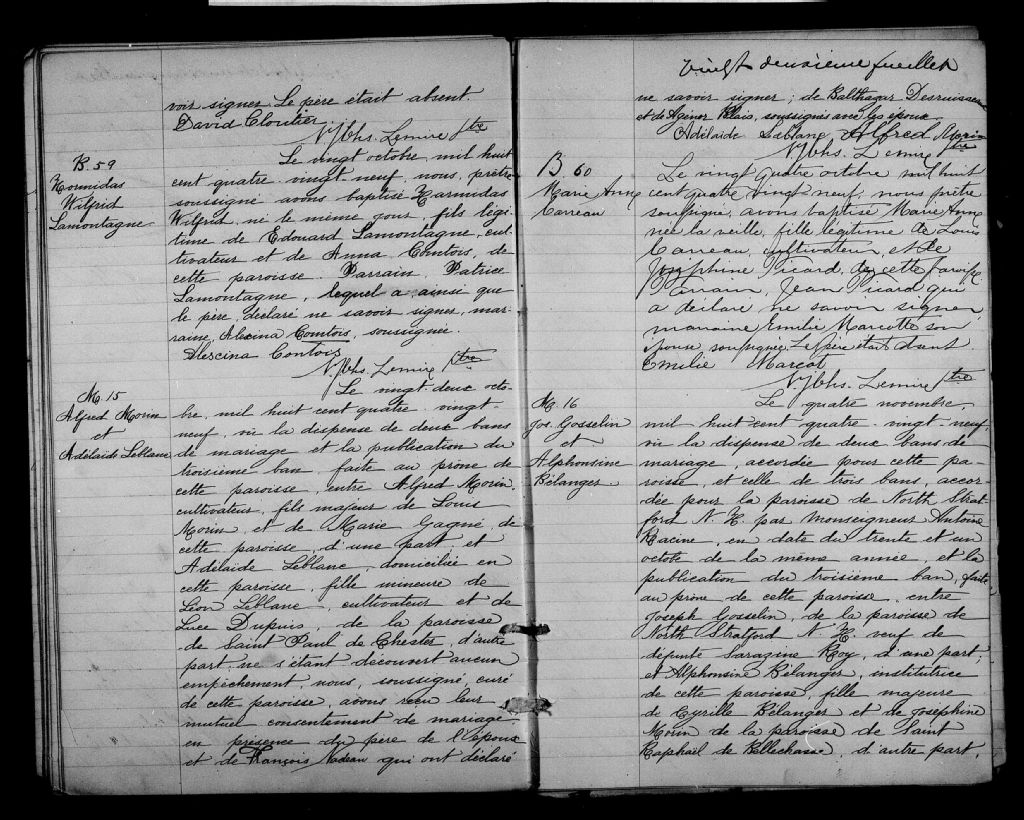 voir signer. Le père était absent.
David Cloutier
N. Jbhs. Lemire Ptre
B. 59
Hormidas
Wilfrid
Lamontagne
Le vingt octobre mil huit
cent quatre vingt neuf, nous, prêtre
soussigné avons baptisé Harmidas
Wilfrid, né le même jour, fils légi-
time de Edouard Lamontagne, cul-
tivateur et de Anna Comtois, de
cette paroisse. Parrain, Patrice
Lamontagne, lequel a, ainsi que
le père, déclaré ne savoir signer, mar-
raine, Alexina Comtois, soussignée.
Alexcina Contois
N. Jbhs. Lemire Ptre
M. 15
Alfred Morin
et
Adélaïde Leblanc
Le vingt-deux octo-
bre, mil huit cent quatre-vingt-
neuf, vu la dispense de deux bans
de mariage et la publication du
troisième ban, faite au prône de
cette paroisse, entre Alfred Morin,
cultivateur, fils majeur de Louis
Morin et de Marie Gagné, de
cette paroisse, d'une part, et
Adélaïde Leblanc, domiciliée en
cette paroisse, fille mineure de
Léon Leblanc, cultivateur et de
Luce Dupuis, de la paroisse
de Saint Paul de Chester, d'autre
part, ne s'étant découvert aucun
empêchement, nous, soussigné, curé
de cette paroisse, avons reçu leur
mutuel consentement de mariage
en présence du père de l'époux
et de François Nadeau qui ont déclaré
Vingt deuxième feuillet
ne savoir signer; de Balthazar Desruisseaux
et de Agénor Blais, soussignés avec les époux.
Adélaide Leblanc Alfred Morin
N. Jbhs. Lemire Ptre
B. 60
Marie Anne
Carreau
Le vingt quatre octobre mil huit
cent quatre vingt neuf, nous prêtre
soussigné, avons baptisé Marie Anne
née la veille, fille légitime de Louis
Carreau, cultivateur, et de
Joséphine Picard, de cette paroisse
Parrain, Jean Picard qui
a déclaré ne savoir signer
marraine Emilie Marcotte son
épouse soussignée. Le père était absent
Emilie Marcot
N. Jbhs. Lemire Ptre
M. 16
Jos. Gosselin
et
Alphonsine
Bélanger
Le quatre novembre,
mil huit cent quatre-vingt-neuf
vu la dispense de deux bans de
mariage, accordée pour cette pa-
roisse, et celle de trois bans, accor-
dée pour la paroisse de North Strat-
ford N. H. par Monseigneur Antoine
Racine, en date du trente et un
octobre de la même année, et la
publication du troisième ban, faite
au prône de cette paroisse, entre
Joseph Gosselin, de la paroisse de
North Stratford N. H. veuf de
défunte Sarazine Roy, d'une part;
et Alphonsine Bélanger, institutrice
de cette paroisse, fille majeure
de Cyrille Bélanger et de Joséphine
Morin de la paroisse de Saint
Raphaël de Bellechasse, d'autre part,